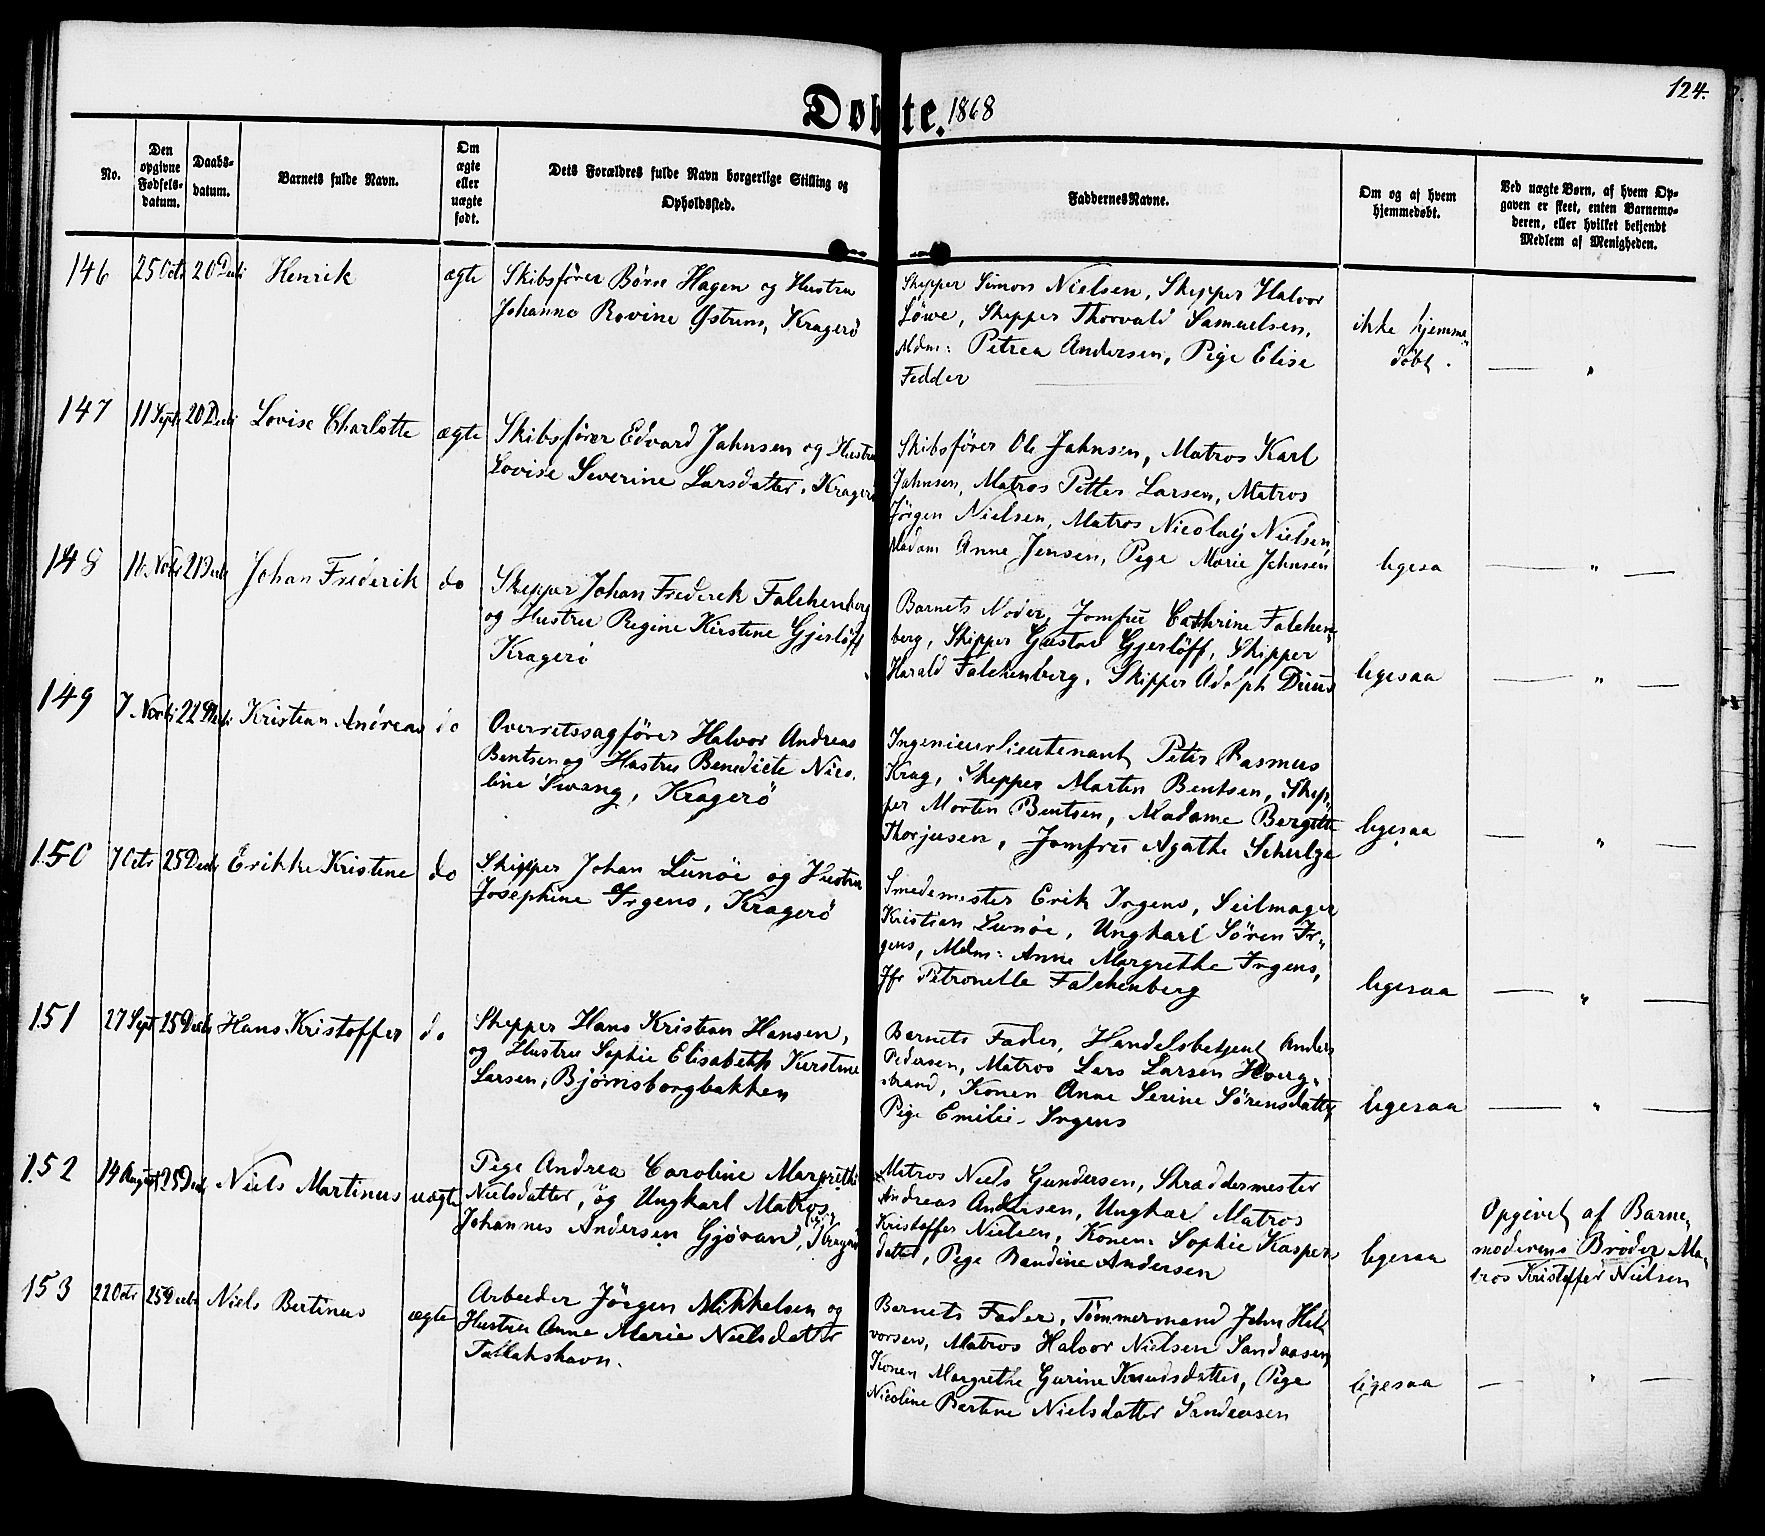 Døbte. 1868
124.
No.
Den opgivne Fødsels-datum.
Daabs-datum.
Barnets fulde Navn.
Om ægte eller uægte født.
Dets Forældres fulde Navn borgerlige Stilling og Opholdssted.
Faddernes Navne.
Om og af hvem hjemmedøbt.
Ved uægte Børn, af hvem Opgaven er skeet, enten Barnemoderen, eller hvilket bekjendt Medlem af Menigheden.
146 25 Octr 20 Decbr Henrik ægte
Skibsfører Børre Hagen og Hustru
Johanne Rovine Østrem, Kragerö
Skipper Simon Nielsen, Skipper Halvor
Löwe, Skipper Thorvald Samuelsen,
Mdm: Petrea Andersen, Pige Elise
Fedder
ikke hjemme-
döbt. — "
147 11 Septr 20 Decbr Lovise Charlotte ægte
Skibsfører Edvard Jahnsen og Hustru
Lovise Severine Larsdatter, Kragerö
Skibsfører Ole Jahnsen, Matros Karl
Jahnsen, Matros Petter Larsen, Matros
Jörgen Nielsen, Matros Nicolaj Nielsen,
Madam Anne Jensen, Pige Marie Jahnsen
ligesa — " —
148 11 Novbr 21 Decbr Johan Frederik do
Skipper Johan Frederik Falchenberg
og Hustru Regine Kirstine Gjerlöff
Kragerö
Barnets Moder, Jomfru Cathrine Falchen-
berg, Skipper Gustav Gjerlöff, Skipper
Harald Falchenberg, Skipper Adolph Duus
ligesaa — " —
149 7 Novbr 22 Decbr Kristian Andreas do
Overretssagfører Halvor Andreas
Bentsen og Hustru Benedicte Nico-
line Swang, Kragerö
Ingenieurlieutenant Peter Rasmus
Krag, Skipper Martin Bentsen, Skip-
per Morten Bentsen, Madame Bergitte
Thorjusen, Jomfru Agathe Schulze
ligesaa — " —
150 7 Octr 25 Decbr Erikke Kristine do
Skipper Johan Lunöe og Hustru
Josephine Irgens, Kragerö
Smedemester Erik Irgens, Seilmager
Kristian Lunöe, Ungkarl Sören Ir-
gens, Mdm: Anne Margrethe Irgens,
Jfr Petronelle Falchenberg
ligesaa — " —
151 27 Sept 25 Decbr Hans Kristoffer do
Skipper Hans Kristian Hansen,
og Hustru Sophie Elisabeth Kirstine
Larsen, Bjørnsborgbakken
Barnets Fader, Handelsbetjent Anders
Pedersen, Matros Lars Larsen Houg-
strand, Konen Anne Serine Sörensdatter,
Pige Emilie Irgens
ligesaa — " —
152 14 August 25 Decbr Niels Martinus uægte
Pige Andrea Caroline Margrethe
Nielsdatter, og Ungkarl Matros
Johannes Andersen Gjøran, Kragerö
Matros Niels Gundersen, Skræddermester
Andreas Andersen, Ungkar Matros
Kristoffer Nielsen, Konen Sophie Kaspers-
datter, Pige Bendine Andersen
ligesaa
Opgivet af Barne-
moderens Broder Ma-
tros Kristoffer Nielsen
153 22 Octr 25 Decbr Niels Bertinus ægte
Arbeider Jörgen Mikkelsen og
Hustru Anne Marie Nielsdatter
Tallakshavn.
Barnets Fader, Tømmermand John Hal-
vorsen, Matros Halvor Nielsen Sandaasen,
Konen Margrethe Gurine Knudsdatter, Pige
Nicoline Bertine Nielsdatter Sandaasen
ligesaa — " —